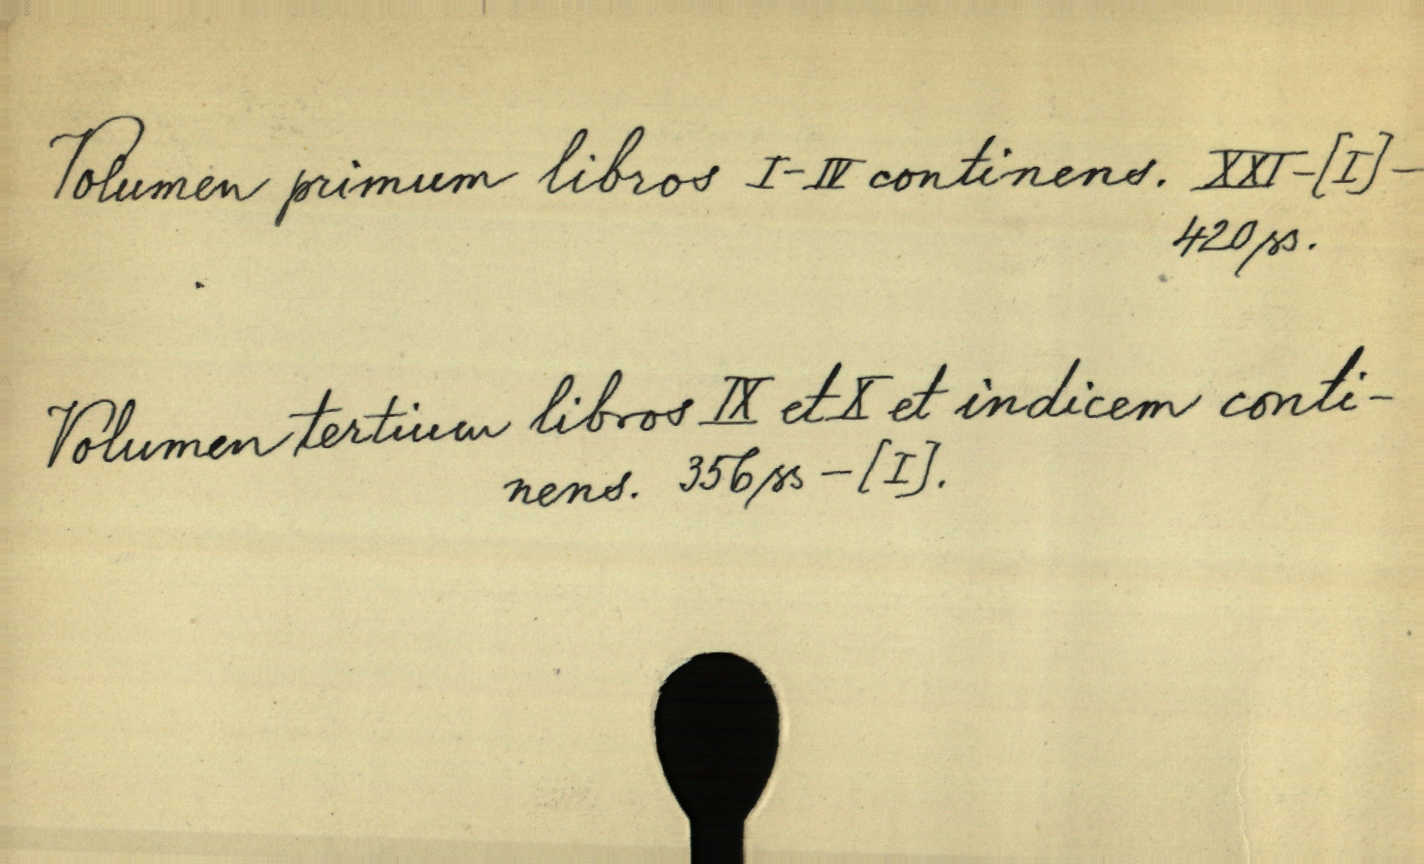 Volumen primum libros I-IV continens. XXI-[I]-
420 ss.
Volumen tertium libros IX et X et indicem conti-
nens. 356 ss - [I].